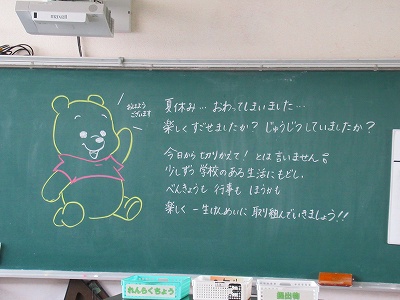 maxell
おはよう
ございます
夏休み…おわってしまいました…
楽しくすごせましたか?じゅうじつしていましたか?
今日から切りかえて!とは言いません。
少しずつ学校のある生活にもどし、
べんきょうも 行事も ほうかも
楽しく一生けんめいに取り組んでいきましょう!!
れんらくちょう
提出物